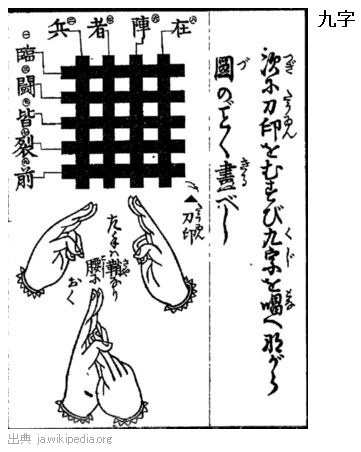 九字
次に刀印をむすび九字を唱へ那がら
圖のごとく畫べし
在
陣
者
兵
臨
闘
皆
裂
前
▲刀印
左手ハ鞘なり
腰に
おく
出典 ja.wikipedia.org